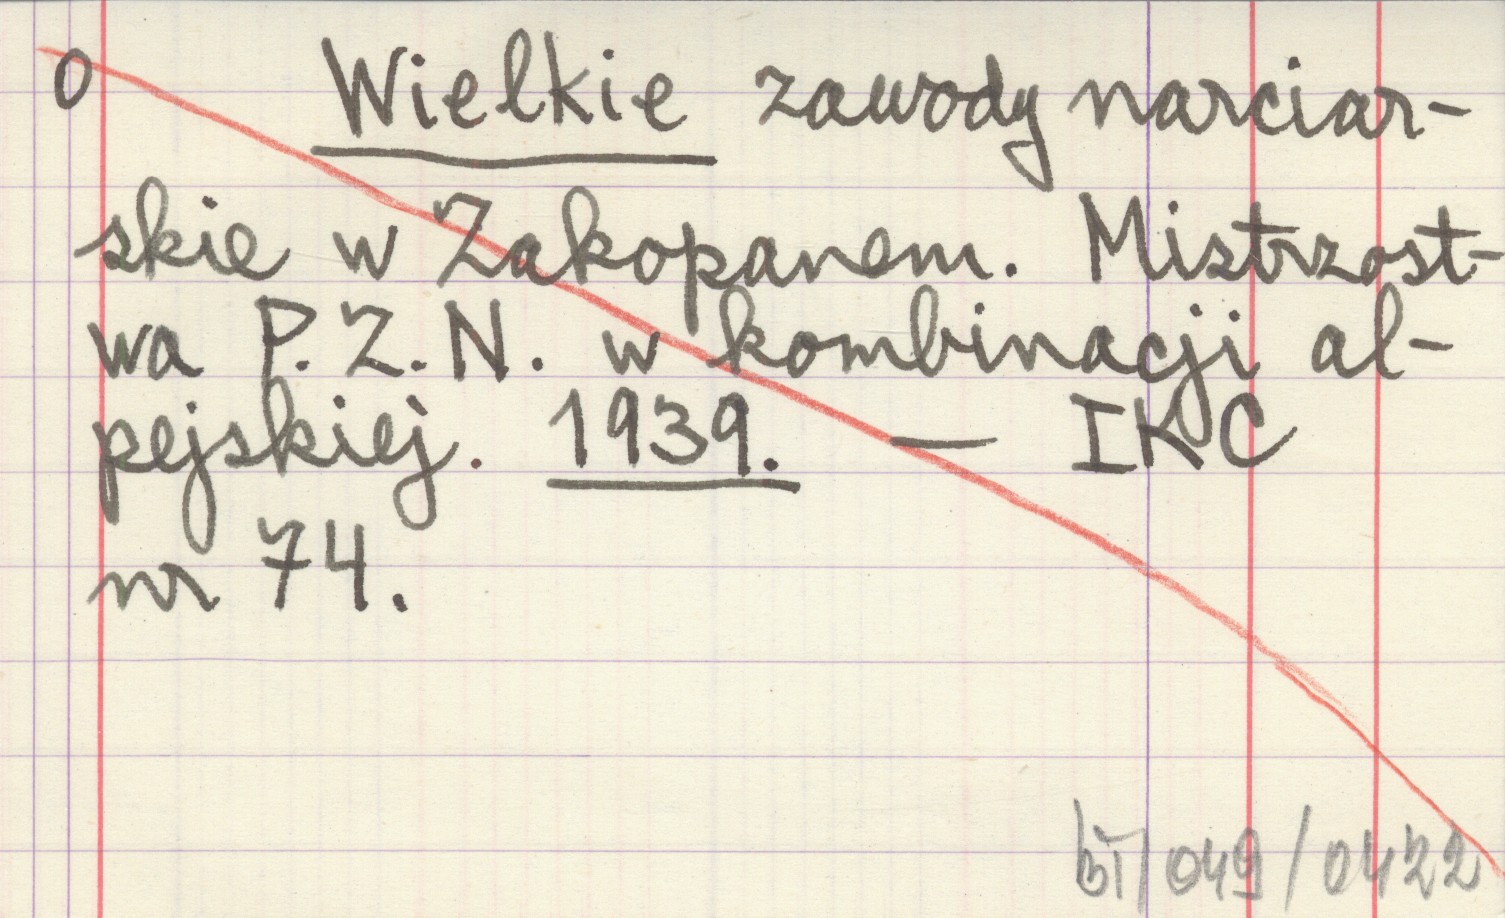 0 Wielkie zawody narciar-
skie w Zakopanem. Mistrzost-
wa P.Z.N. w kombinacji al-
pejskiej. 1939. — IKC
nr 74.
/049/0422